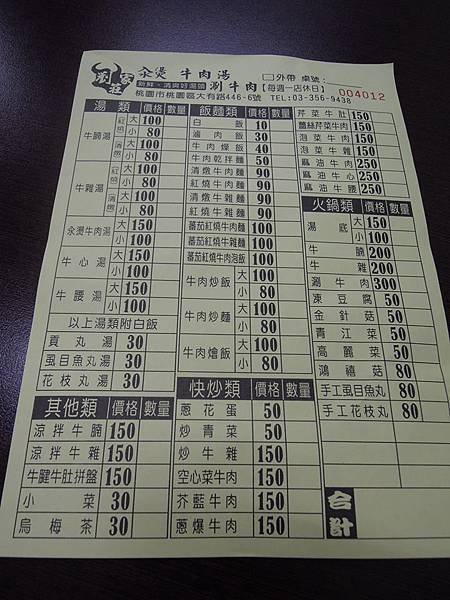 劉家莊
汆燙 牛肉湯
涮牛肉【每週一店休日】
□外帶 桌號:
桃園市桃園區大有路446-6號 TEL:03-356-9438
004012
湯類 價格 數量
牛腩湯 紅燒 大 100
小 80
清燉 大 100
小 80
牛雜湯 紅燒 大 100
小 80
清燉 大 100
小 80
汆燙牛肉湯 大 150
小 100
牛心湯 大 150
小 100
牛腰湯 大 150
小 100
以上湯類附白飯
貢丸湯 30
虱目魚丸湯 30
花枝丸湯 30
其他類 價格 數量
涼拌牛腩 150
涼拌牛雜 150
牛腱牛肚拼盤 150
小菜 30
烏梅茶 30
飯麵類 價格 數量
白飯 10
滷肉飯 30
牛肉燥飯 40
牛肉乾拌麵 50
清燉牛肉麵 90
紅燒牛肉麵 90
清燉牛雜麵 90
紅燒牛雜麵 90
蕃茄紅燒牛肉麵 100
蕃茄紅燒牛雜麵 100
蕃茄紅燒牛肉泡飯 100
牛肉炒飯 大 100
小 80
牛肉炒麵 大 100
小 80
牛肉燴飯 大 100
小 80
快炒類 價格 數量
蔥花蛋 50
炒青菜 50
炒牛雜 150
空心菜牛肉 150
芥藍牛肉 150
蔥爆牛肉 150
芹菜牛肚 150
薑絲芹菜牛肉 150
泡菜牛肉 150
泡菜牛雜 150
麻油牛肉 250
麻油牛心 250
麻油牛腰 250
火鍋類 價格 數量
湯底 大 150
小 100
牛腩 200
牛雜 200
涮牛肉 300
凍豆腐 50
金針菇 50
青江菜 50
高麗菜 50
鴻禧菇 80
手工虱目魚丸 80
手工花枝丸 80
合計